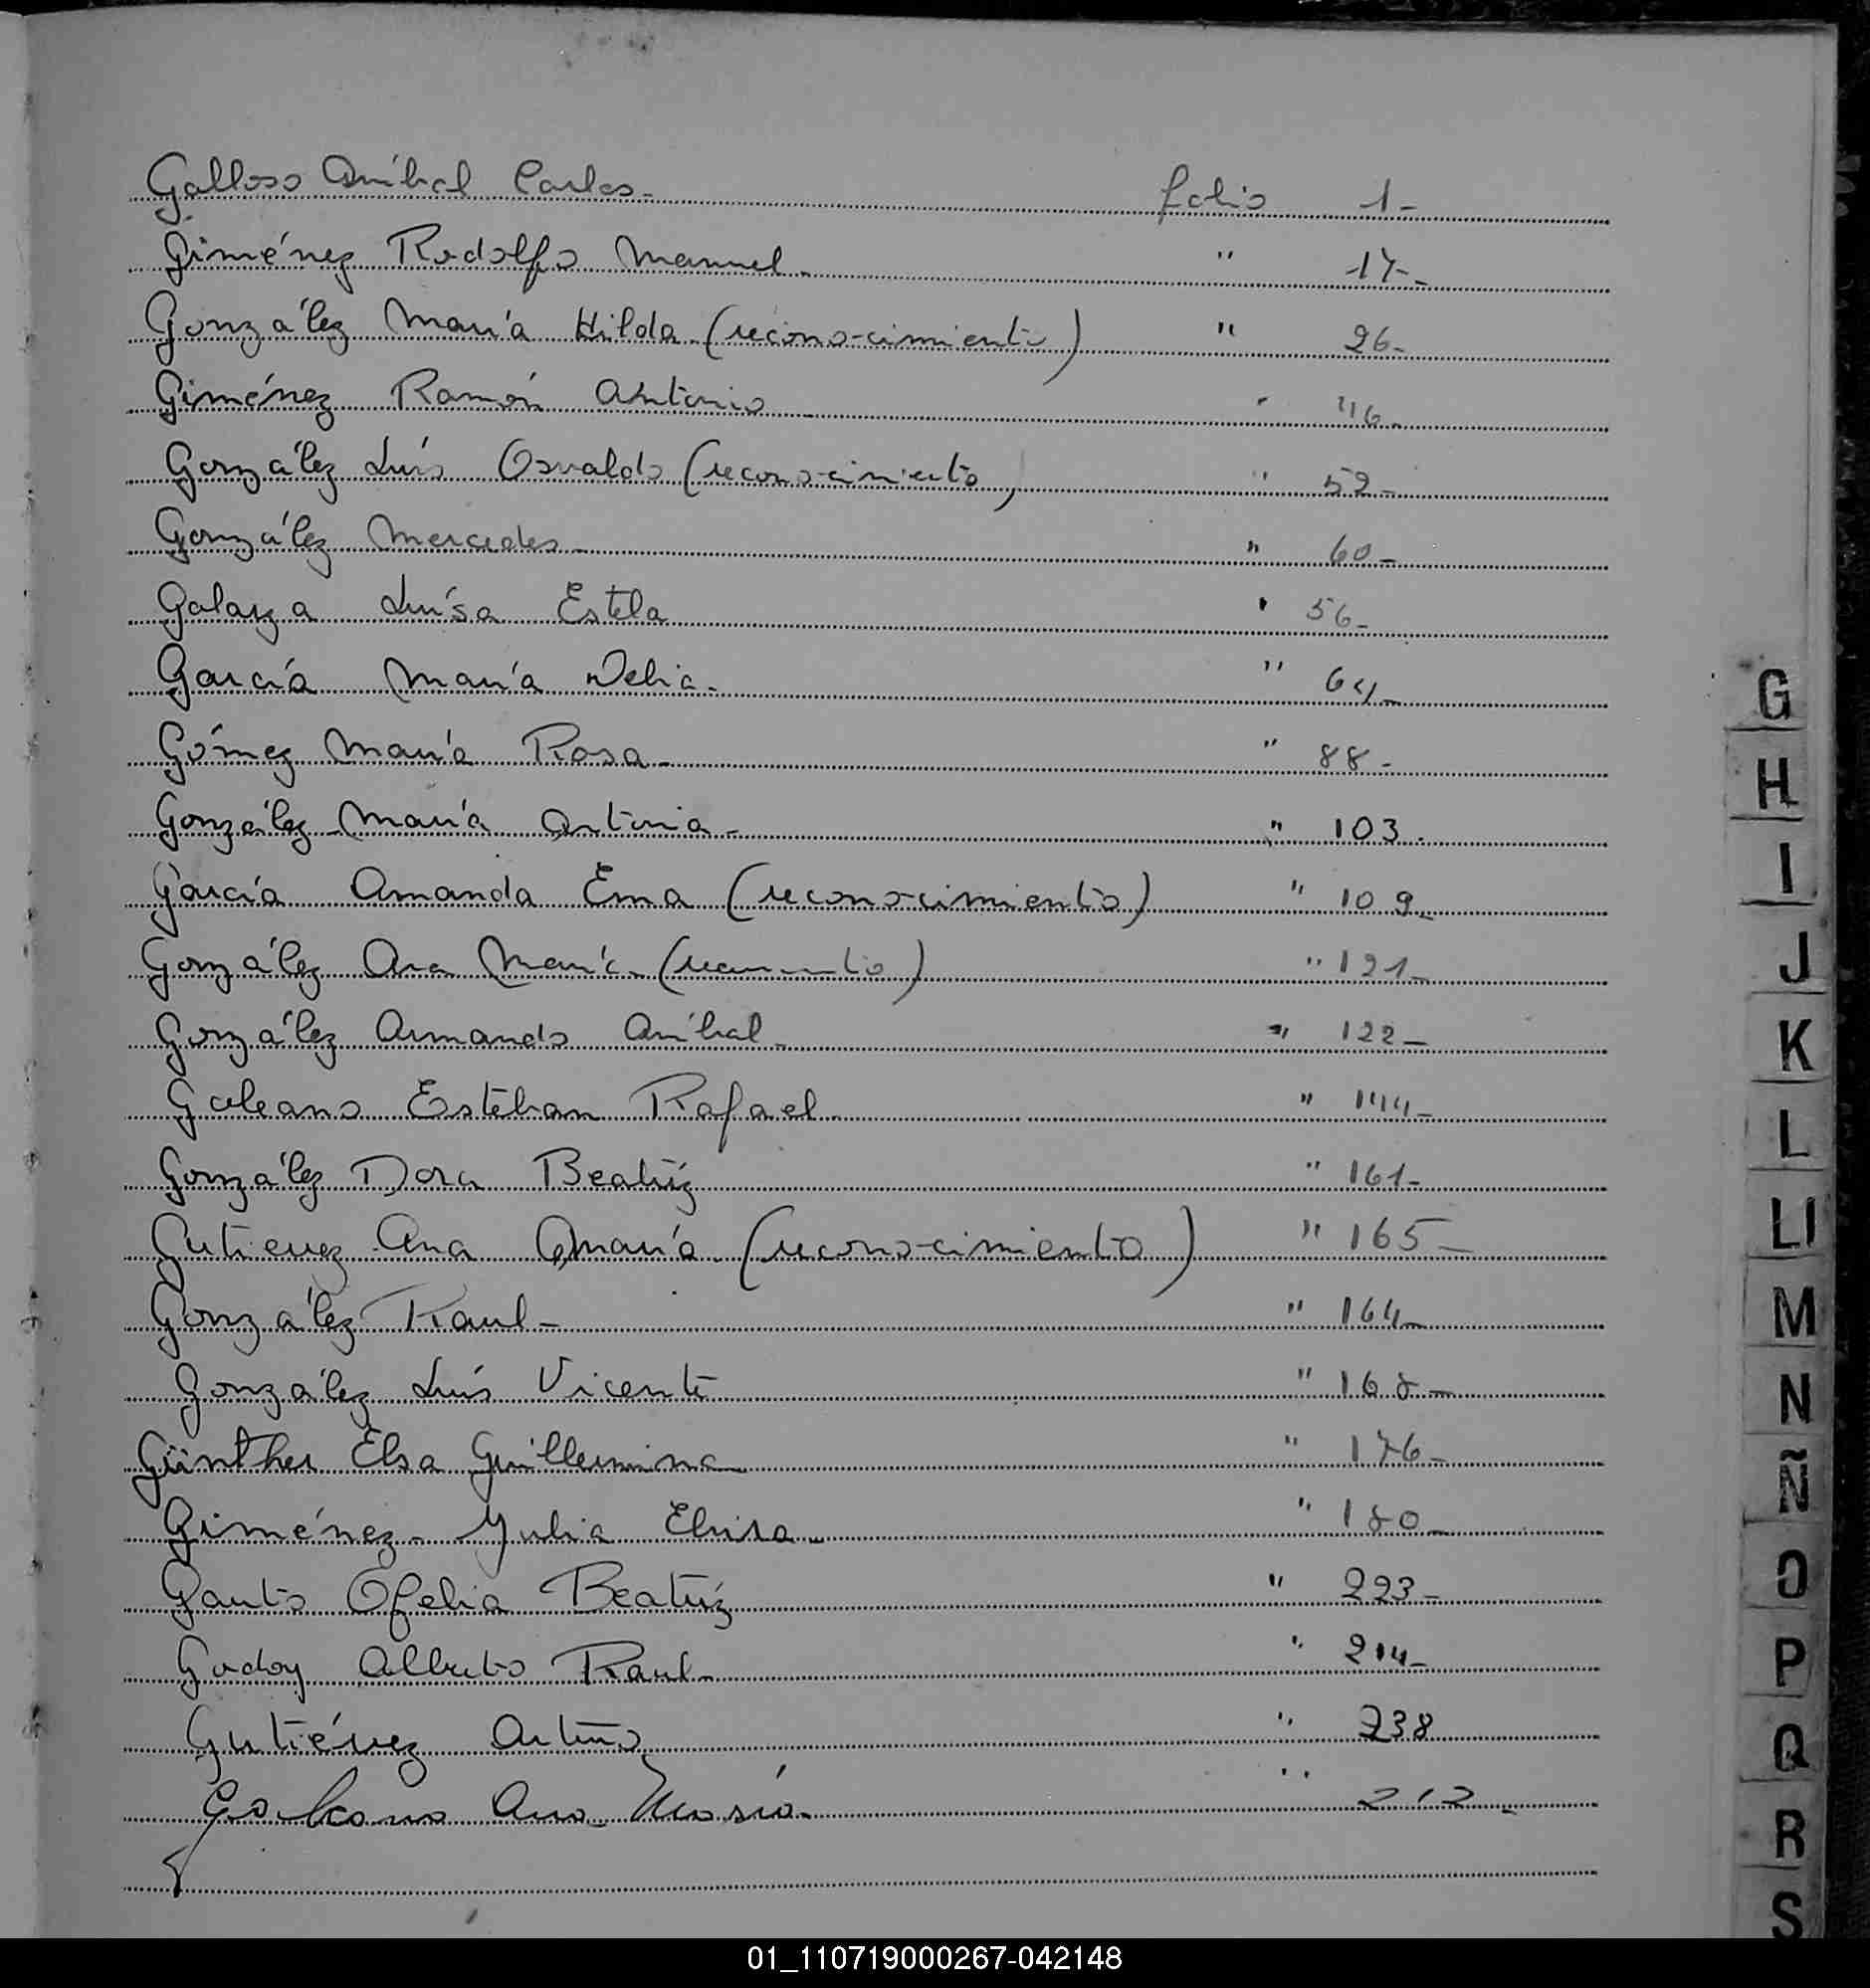 Galloso Aníbal Carlos- folio 1-
Giménez Rodolfo Manuel- " 17-
González María Hilda (reconocimiento) " 26-
Giménez Ramón Antonio " 46-
González Luís Osvaldo (reconocimiento) " 52-
González Mercedes- " 60-
Galarza Luísa Estela " 56-
García María Delia- " 64-
Gómez María Rosa- " 88-
González María Antonia- " 103-
García Amanda Ema (reconocimiento) " 109-
González Ana María (reconocimiento) " 121-
González Armando Aníbal- " 122-
Galeano Estéban Rafael- " 144-
González Dora Beatríz " 161-
Gutierrez Ana María (reconocimiento) " 165-
González Raul- " 164-
González Luís Vicente " 168-
Günther Elsa Guillermina " 176-
Giménez- Yulia Elvisa- " 180-
Gauto Ofelia Beatríz " 223-
Godoy Alberto Raul- " 214-
Gutiérrez Arturo " 238
Galeano Ana María- " 212-
G
H
I
J
K
L
Ll
M
N
Ñ
O
P
Q
R
S
01_110719000267-042148